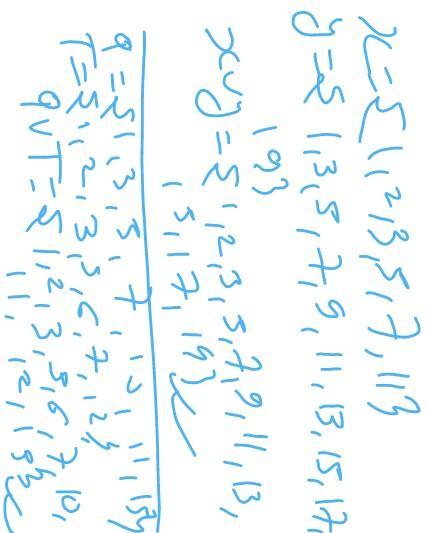 x = { 1, 2, 3, 5, 7, 11}
y = { 1, 3, 5, 7, 9, 11, 13, 15, 17,
19}
x ∪ y = { 1, 2, 3, 5, 7, 9, 11, 13,
15, 17, 19}
q = { 1, 3, 5, 7, 10, 11, 13}
T = { 1, 2, 3, 5, 6, 7, 12}
q ∪ T = { 1, 2, 3, 5, 6, 7, 10,
11, 12, 13}